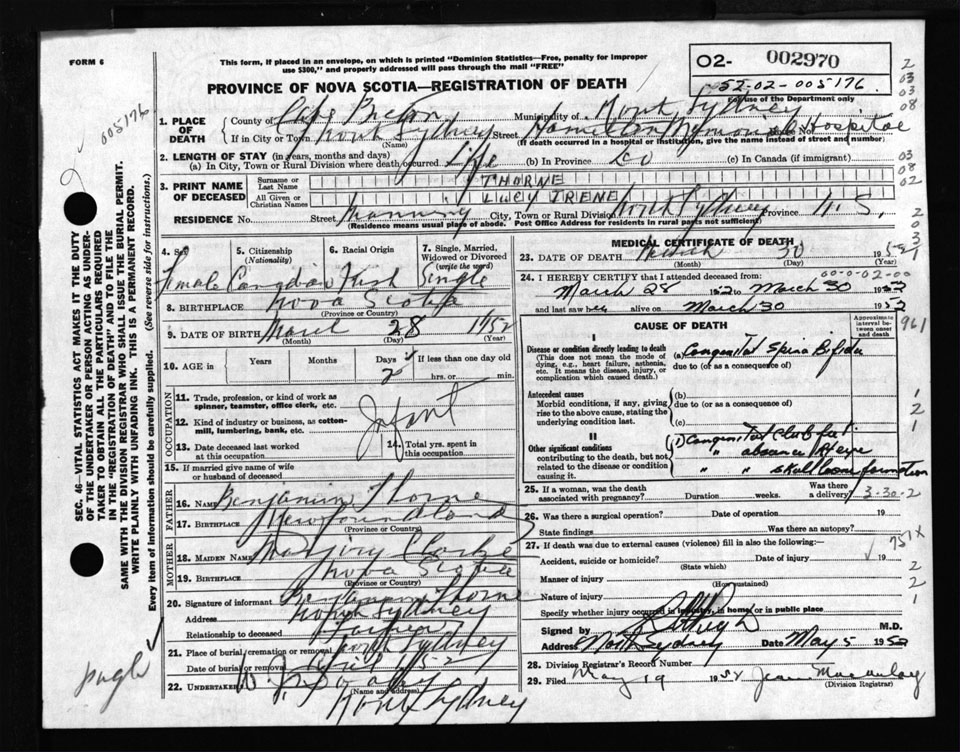 FORM 6
This form, if placed in an envelope, on which is printed "Dominion Statistics—Free, penalty for improper
use $300," and properly addressed will pass through the mail "FREE"
O2- 002970
52-02-005176
For use of the Department only
PROVINCE OF NOVA SCOTIA—REGISTRATION OF DEATH
1. PLACE OF DEATH
County of Cape Breton Municipality of North Sydney
If in City or Town North Sydney Street Hamilton Memorial Hospital
(Name) (If death occurred in a hospital or institution, give the name instead of street and number)
2. LENGTH OF STAY (in years, months and days)
(a) In City, Town or Rural Division where death occurred Life (b) In Province Do (c) In Canada (if immigrant)
3. PRINT NAME OF DECEASED
Surname or Last Name THORNE
All Given or Christian Names LUCY IRENE
RESIDENCE No. Street City, Town or Rural Division North Sydney Province N.S.
(Residence means usual place of abode. Post Office Address for residents in rural parts not sufficient)
4. Sex Female
5. Citizenship (Nationality) Canadian
6. Racial Origin Irish
7. Single, Married, Widowed or Divorced (write the word) Single
8. BIRTHPLACE Nova Scotia
(Province or Country)
9. DATE OF BIRTH March 28 1952
(Month) (Day) (Year)
10. AGE in Years Months Days 2 If less than one day old
hrs. or min.
OCCUPATION
11. Trade, profession or kind of work as
spinner, teamster, office clerk, etc.
12. Kind of industry or business, as cotton-
mill, lumbering, bank, etc.
Infant
13. Date deceased last worked
at this occupation
14. Total yrs. spent in
this occupation
15. If married give name of wife
or husband of deceased
FATHER
16. NAME Benjamin Thorne
17. BIRTHPLACE Newfoundland
(Province or Country)
MOTHER
18. MAIDEN NAME Clarke
19. BIRTHPLACE Nova Scotia
(Province or Country)
20. Signature of informant Benjamin Thorne
Address North Sydney
Relationship to deceased Father
21. Place of burial, cremation or removal North Sydney
Date of burial or removal
22. UNDERTAKER
(Name and address)
North Sydney
MEDICAL CERTIFICATE OF DEATH
23. DATE OF DEATH March 30 1952
(Month) (Day) (Year)
00-0-02-00
24. I HEREBY CERTIFY that I attended deceased from:
March 28 1952 to March 30 1952
and last saw her alive on March 30 1952
CAUSE OF DEATH
Approximate interval between onset and death
I
Disease or condition directly leading to death
(This does not mean the mode of dying, e.g., heart failure, asthenia, etc. It means the disease, injury, or complication which caused death.)
(a) Congenital Spina Bifida
due to (or as a consequence of)
Antecedent causes
Morbid conditions, if any, giving rise to the above cause, stating the underlying condition last.
(b)
due to (or as a consequence of)
(c)
II
Other significant conditions
contributing to the death, but not related to the disease or condition causing it.
(1) Congenital Club feet
" absence Rt eye
" " skull bone formation
25. If a woman, was the death
associated with pregnancy? Duration weeks. Was there a delivery?
3-30-2
26. Was there a surgical operation? Date of operation 19
State findings Was there an autopsy?
27. If death was due to external causes (violence) fill in also the following:—
Accident, suicide or homicide? Date of injury 19
(State which)
Manner of injury
(How sustained)
Nature of injury
Specify whether injury occurred in industry, in home, or in public place
Signed by M.D.
Address North Sydney Date May 5 1952
28. Division Registrar's Record Number
29. Filed May 19 1952 Jean Macaulay
(Division Registrar)
SEC. 46—VITAL STATISTICS ACT MAKES IT THE DUTY
OF THE UNDERTAKER OR PERSON ACTING AS UNDER-
TAKER TO OBTAIN ALL THE PARTICULARS REQUIRED
IN THE "REGISTRATION OF DEATH" AND TO FILE THE
SAME WITH THE DIVISION REGISTRAR WHO SHALL ISSUE THE BURIAL PERMIT.
WRITE PLAINLY WITH UNFADING INK. THIS IS A PERMANENT RECORD.
Every item of information should be carefully supplied. (See reverse side for instructions.)
005176
2
03
03
08
03
08
02
2
0
3
1
961
1
2
1
751X
2
2
1